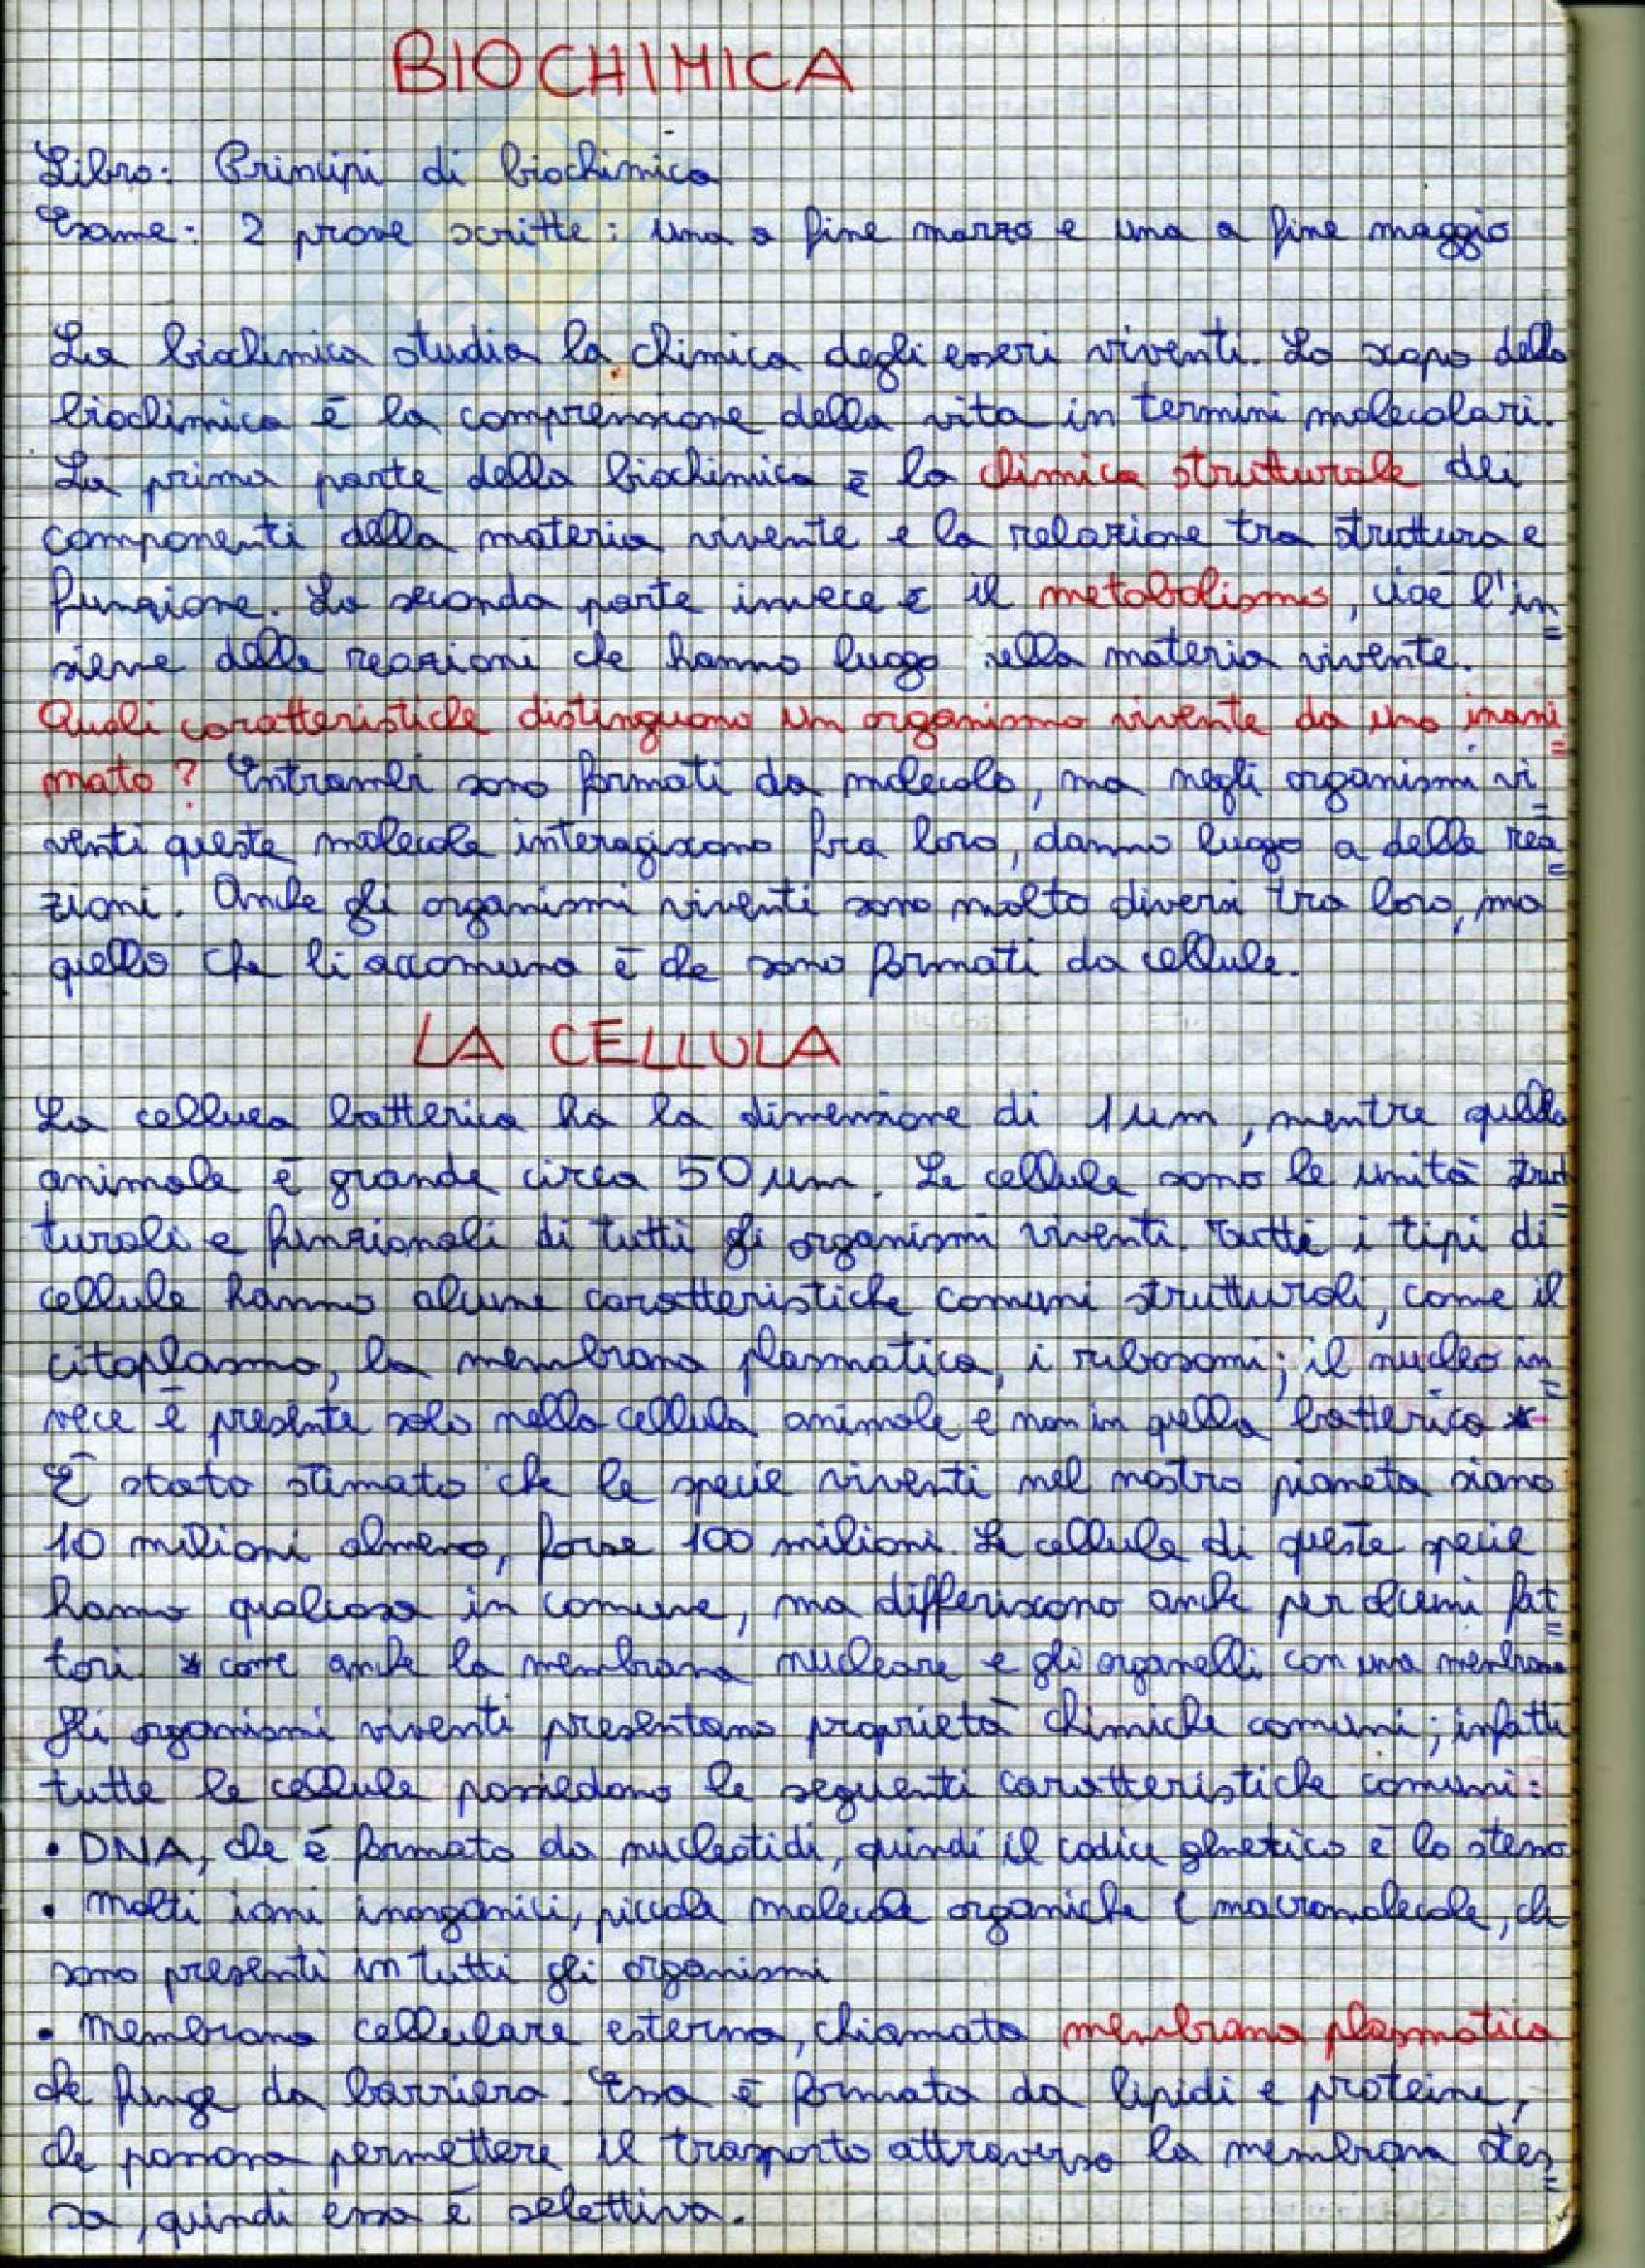 BIOCHIMICA
Libro: Principi di biochimica
Esame: 2 prove scritte: una a fine marzo e una a fine maggio
La biochimica studia la chimica degli esseri viventi. Lo scopo della
biochimica è la comprensione della vita in termini molecolari.
La prima parte della biochimica è la chimica strutturale dei
componenti della materia vivente e la relazione tra struttura e
funzione. La seconda parte invece è il metabolismo, cioè l'in
sieme delle reazioni che hanno luogo nella materia vivente.
Quali caratteristiche distinguono un organismo vivente da uno inani
mato? Entrambi sono formati da molecole, ma negli organismi vi
venti queste molecole interagiscono fra loro, danno luogo a delle rea
zioni. Anche gli organismi viventi sono molto diversi tra loro, ma
quello che li accomuna è che sono formati da cellule.
LA CELLULA
La cellula batterica ha la dimensione di 1 μm, mentre quella
animale è grande circa 50 μm. Le cellule sono le unità strut
turali e funzionali di tutti gli organismi viventi. Tutti i tipi di
cellule hanno alcune caratteristiche comuni strutturali, come il
citoplasma, la membrana plasmatica, i ribosomi; il nucleo in
vece è presente solo nella cellula animale e non in quella batterica *
È stato stimato che le specie viventi nel nostro pianeta siano
10 milioni almeno, forse 100 milioni. Le cellule di queste specie
hanno qualcosa in comune, ma differiscono anche per alcuni fat
tori. * come anche la membrana nucleare e gli organelli con una membrana
Gli organismi viventi presentano proprietà chimiche comuni; infatti
tutte le cellule possiedono le seguenti caratteristiche comuni:
• DNA, che è formato da nucleotidi, quindi il codice genetico è lo stesso
• Molti ioni inorganici, piccole molecole organiche e macromolecole, che
sono presenti in tutti gli organismi
• Membrana cellulare esterna, chiamata membrana plasmatica
che funge da barriera. Essa è formata da lipidi e proteine,
che possono permettere il trasporto attraverso la membrana stes
sa, quindi essa è selettiva.